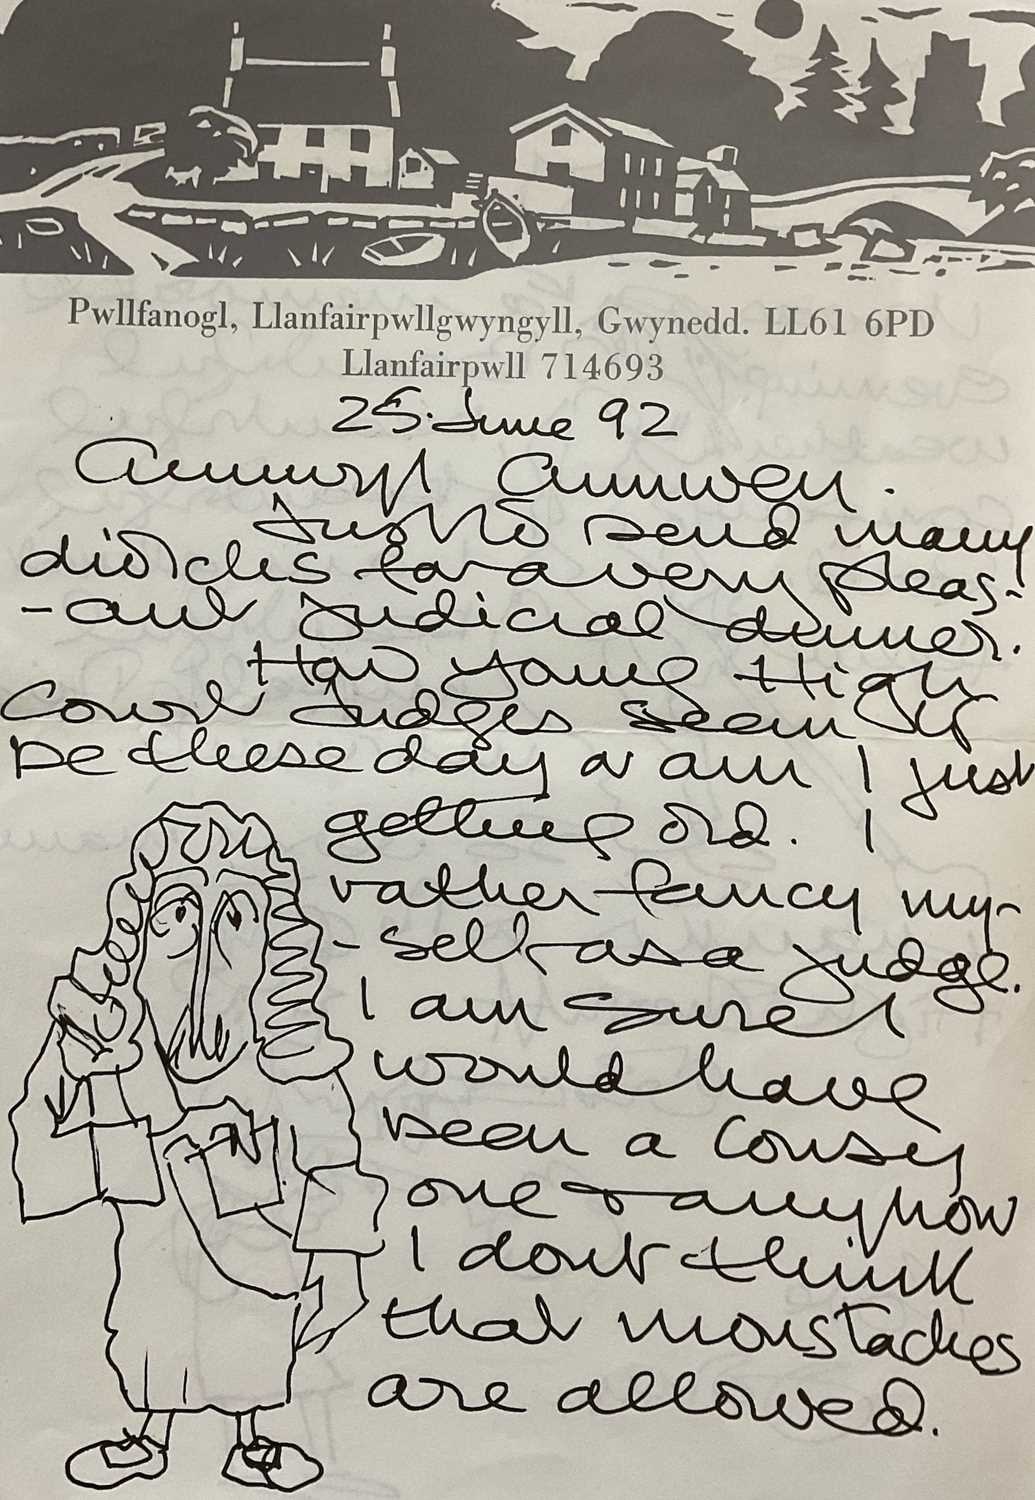 Pwllfanogl, Llanfairpwllgwyngyll, Gwynedd. LL61 6PD
Llanfairpwll 714693
25. June 92
Annwyl Annwen.
Just to send many
diolchs for a very pleas-
-ant judicial dinner.
How young High
Court Judges seem to
be these day or am I just
getting old. I
rather fancy my-
-self as a judge.
I am sure I
would have
been a
one & anyhow
I dont think
that moustaches
are allowed.